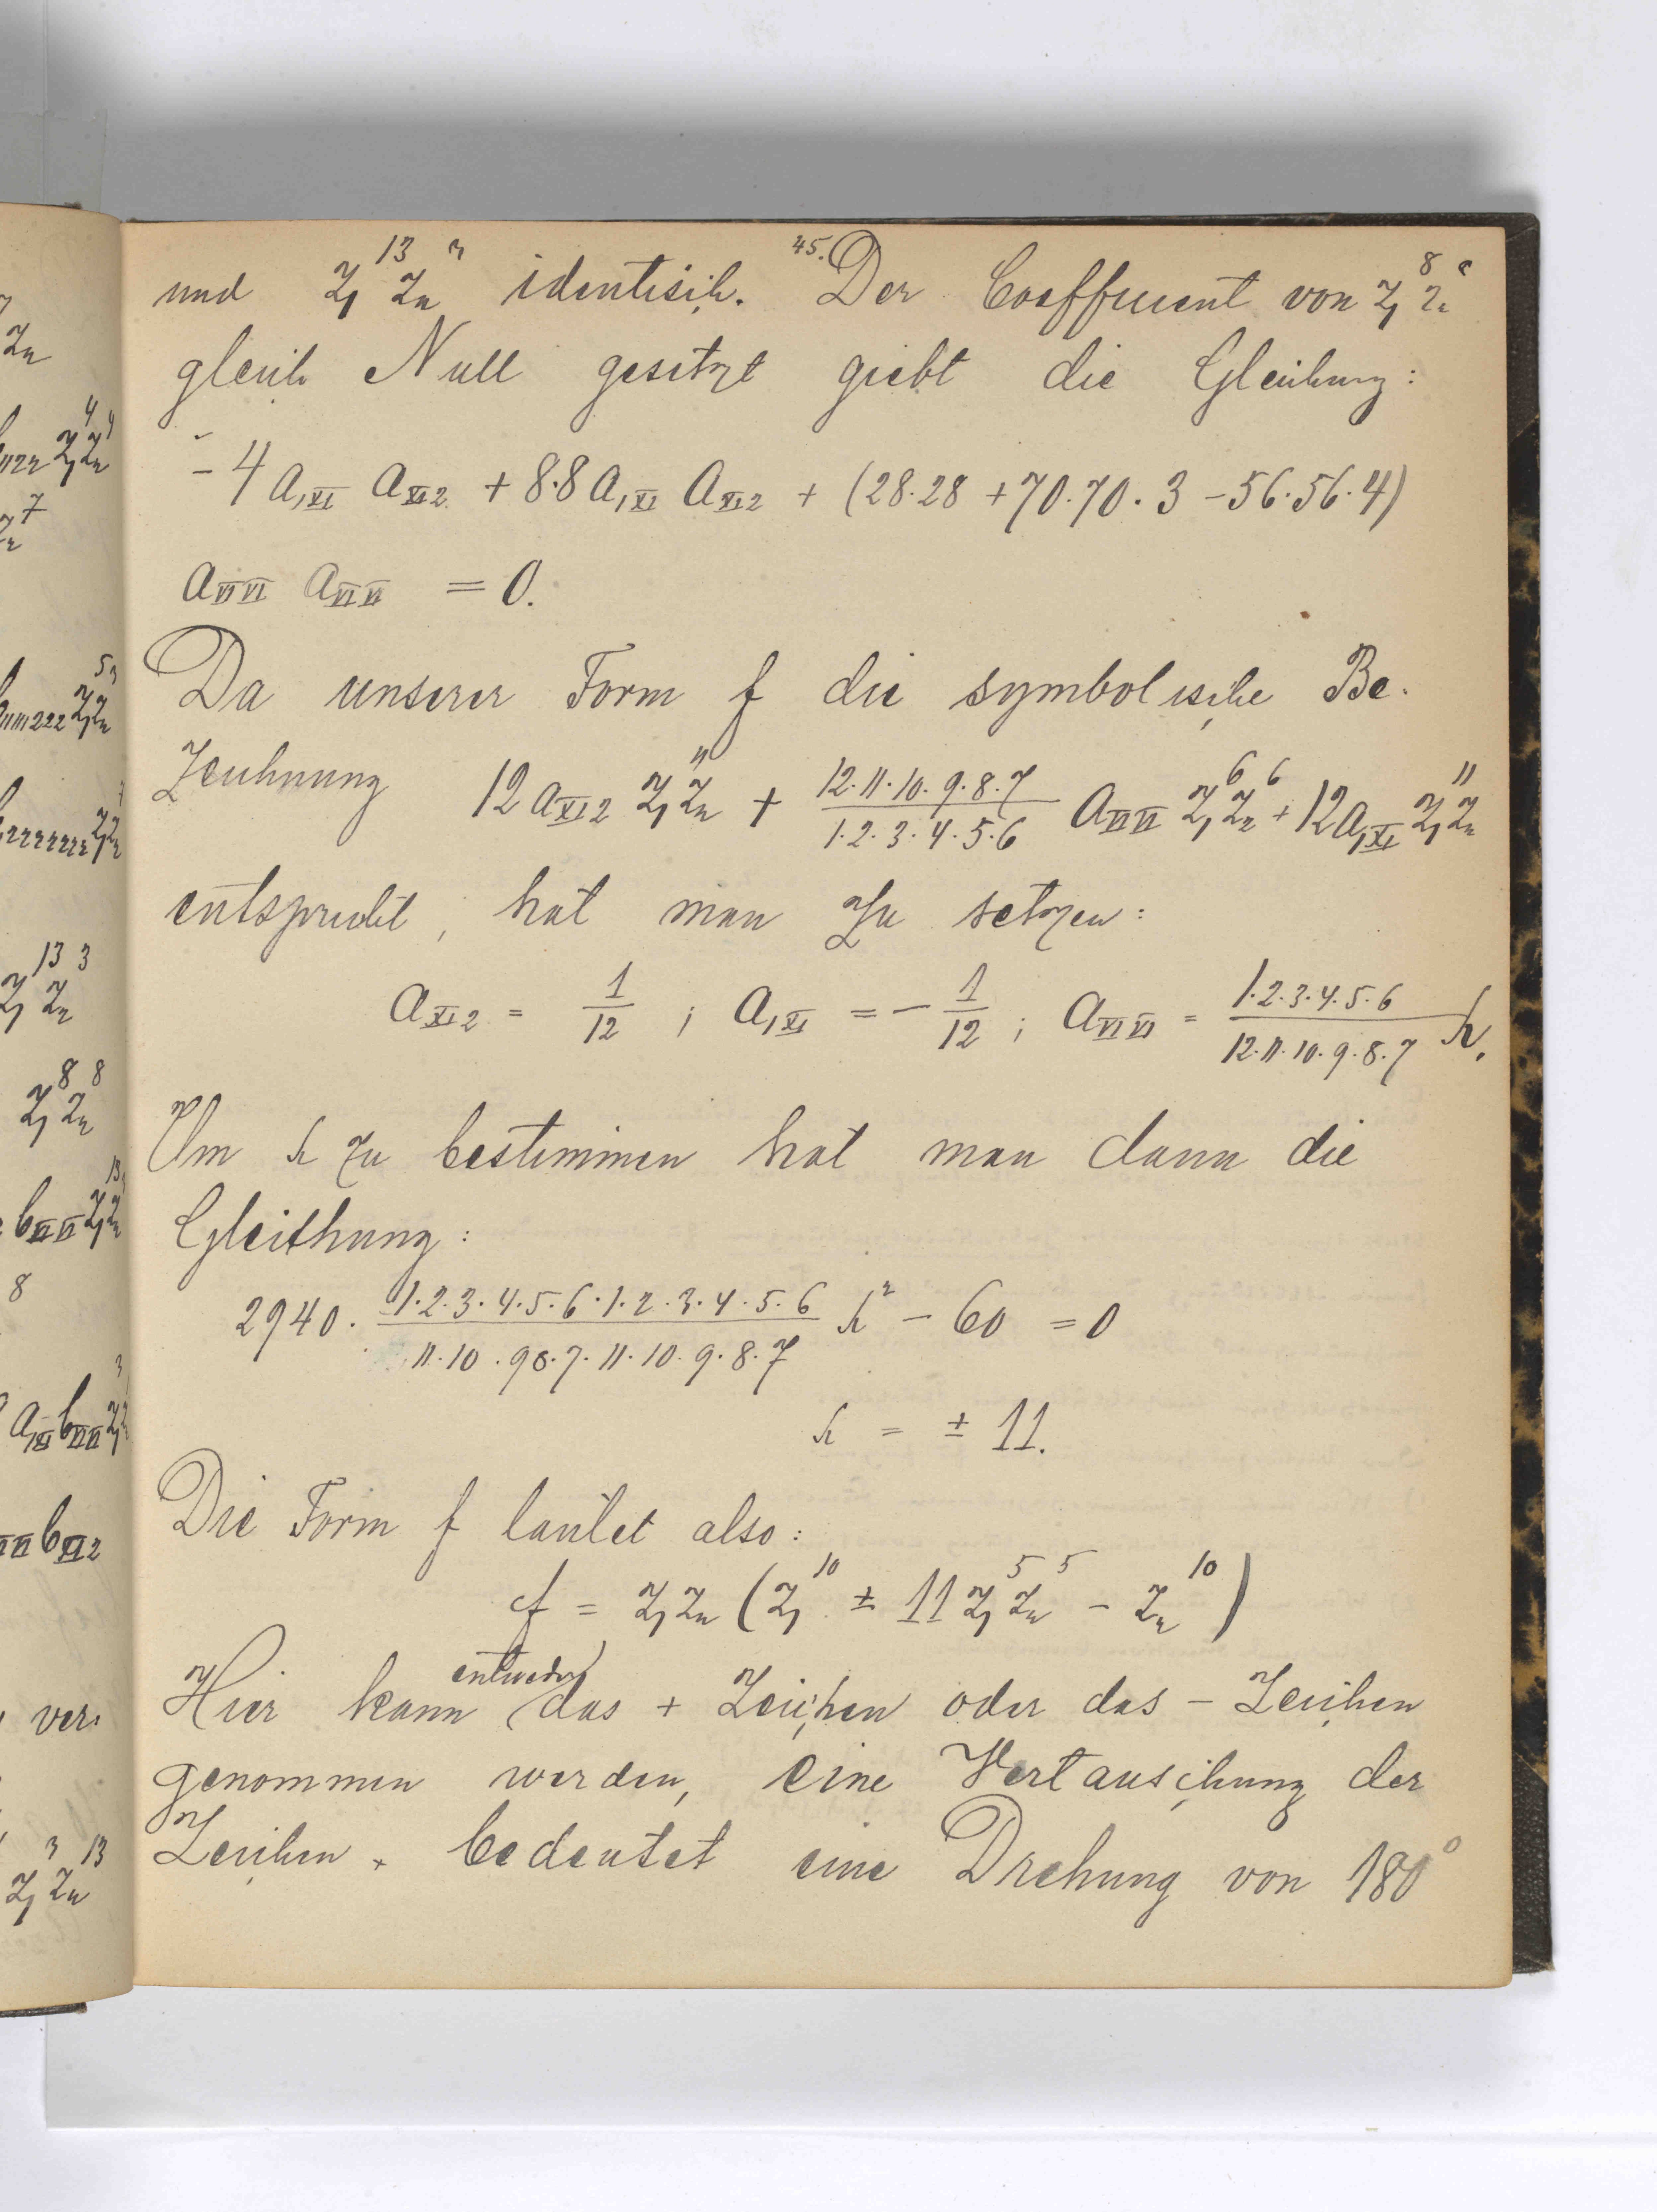 45.
und z₁¹³ z₂³ identisch. Der Coefficient von z₁⁸ z₂⁸
gleich Null gesetzt giebt die Gleichung:
- 4 a₁XI aXI2 + 8·8 a₁XI aXI2 + (28·28 + 70·70·3 - 56·56·4)
aVI VI aVI VI = 0.
Da unserer Form f die symbolische Be-
zeichnung 12 aXI2 z₁¹¹ z₂ + 12·11·10·9·8·7 / 1·2·3·4·5·6 aVI VI z₁⁶ z₂⁶ + 12 a₁XI z₁ z₂¹¹
entspricht, hat man zu setzen:
aXI2 = 1/12 ; a₁XI = - 1/12 ; aVI VI = 1·2·3·4·5·6 / 12·11·10·9·8·7 h.
Um h zu bestimmen hat man dann die
Gleichung:
2940 · 1·2·3·4·5·6·1·2·3·4·5·6 / 11·10·9 8·7·11·10·9·8·7 h² - 60 = 0
h = ± 11.
Die Form f lautet also:
f = z₁ z₂ (z₁¹⁰ ± 11 z₁⁵ z₂⁵ - z₂¹⁰)
Hier kann entweder das + Zeichen oder das - Zeichen
genommen werden, eine Vertauschung der
Zeichen bedeutet eine Drehung von 180°